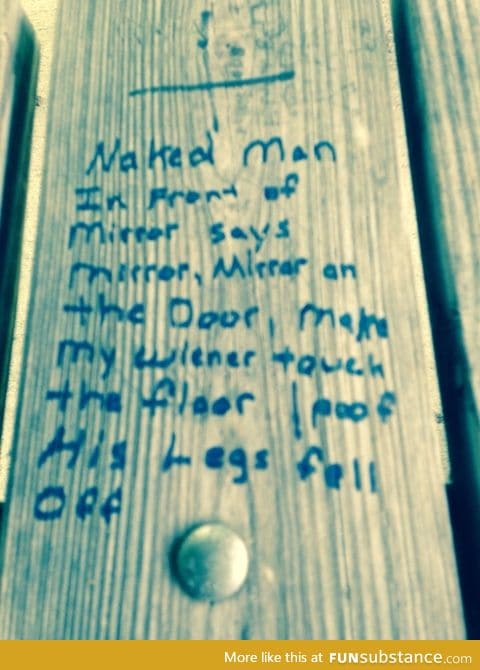 Naked Man
In Front of
Mirror says
mirror, Mirror on
the Door, make
my wiener touch
the floor | poof
His Legs fell
Off
More like this at FUNsubstance.com